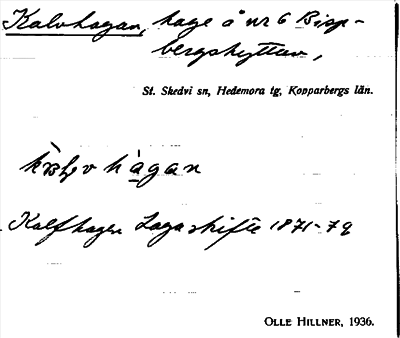 Kalvhagan, hage å nr 6 Bisp-
bergshyttan,
St. Skedvi sn, Hedemora tg, Kopparbergs län.
hàgan
Kalfhagen Laga skifte 1871-79
OLLE HILLNER, 1936.